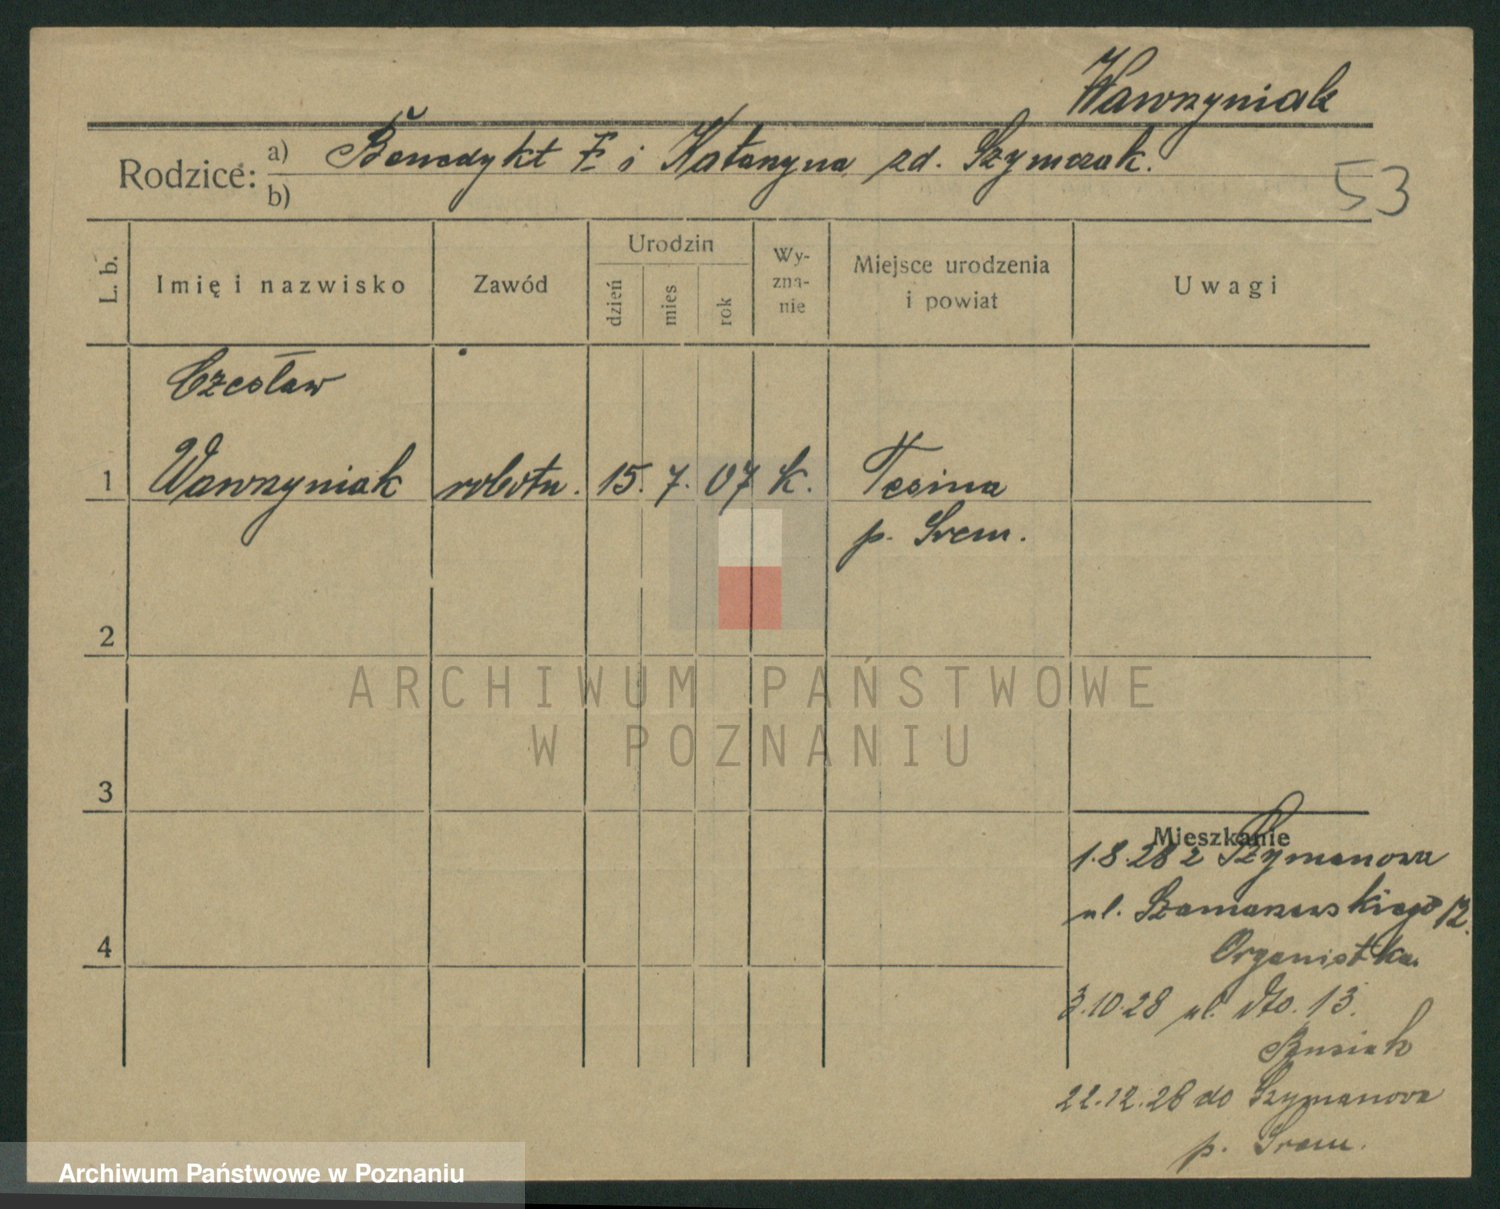 Wawrzyniak
Rodzice: a) Benedykt i Katarzyna zd. Szymczak.
b)
53
L. b.
Imię i nazwisko
Zawód
Urodzin
dzień
mies
rok
Wy-
zna-
nie
Miejsce urodzenia
i powiat
Uwagi
Czesław
1 Wawrzyniak robotn. 15. 7. 07 k. Tesina
p. Śrem.
2
ARCHIWUM PAŃSTWOWE
W POZNANIU
3
Mieszkanie
1.8.28 z Szymanowa
ul. Szamarzewskiego 12.
4
Organistka
3.10.28 ul. dto. 13.
22.12.28 do Szymanowa
p. Śrem.
Archiwum Państwowe w Poznaniu